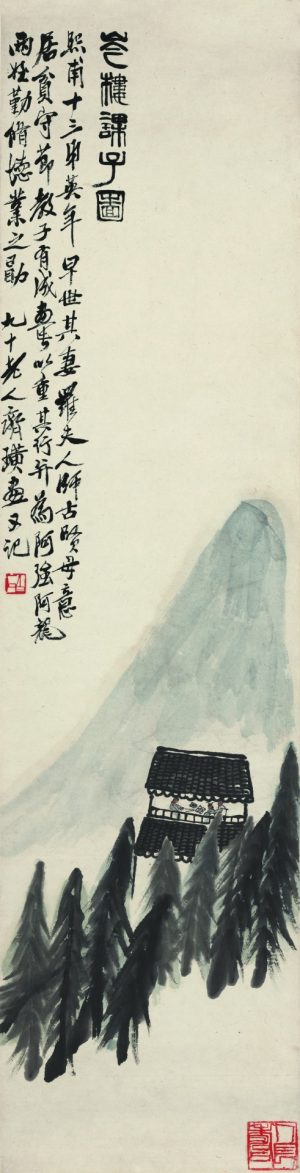 樓課子圖
熙甫十三弟英年早世其妻羅夫人師古賢母意
居貧守節教子有成畫此以重其行并為阿強阿龍
兩姪勤脩德業之勗 九十老人齊璜畫又記
人長壽